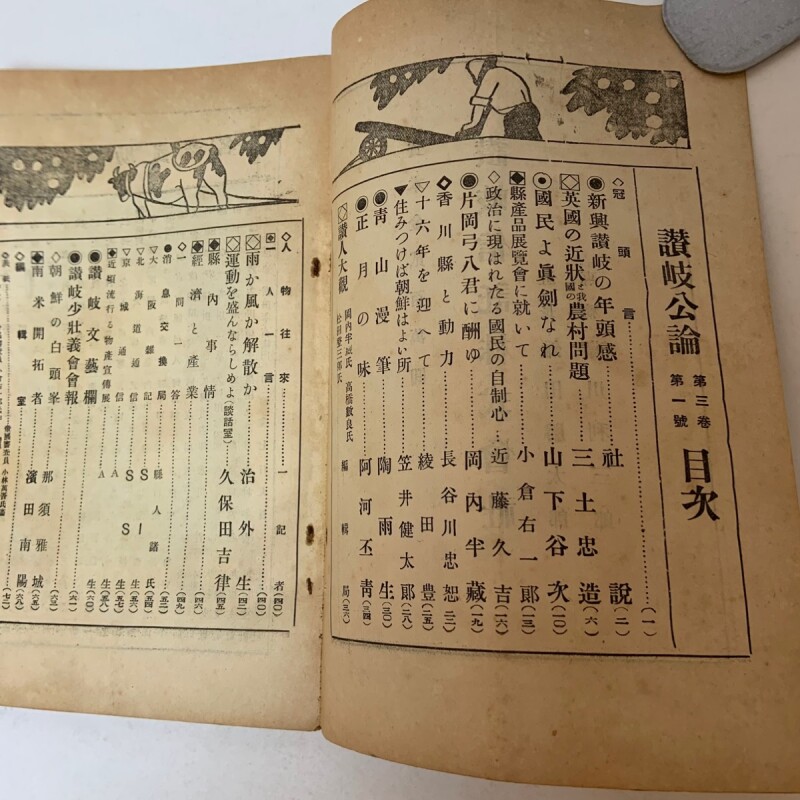 讃岐公論 第三卷 第一號 目次
◇冠頭言……(一)
◉新興讃岐の年頭感……社說(二)
◇英國の近狀と我國の農村問題……三土忠造(六)
◉國民よ眞劍なれ……山下谷次(一〇)
◆縣產品展覽會に就いて……小倉右一郞(一三)
◇政治に現はれたる國民の自制心…近藤久吉(一六)
◉片岡弓八君に酬ゆ……岡內半藏(一九)
◆香川縣と動力……長谷川忠恕(二三)
▽十六年を迎へて……綾田豊(二五)
▼住みつけば朝鮮はよい所……笠井健太郞(二八)
◉靑山漫筆……陶雨生(三〇)
◉正月の味……阿河丕靑(三四)
◇讃人大觀 岡內半垣氏 高橋數良氏 松田整三郞氏 編輯局(三六)
◇人物往來……一記者(四〇)
◆一人一言……(四〇)
◇雨か風か解散か……治外生(四二)
◇運動を盛んならしめよ(談話室)……久保田吉律(四五)
◆縣內事情……(四六)
◆經濟と產業……(四九)
◇一問一答……
●消息交換局……(五二)
▽大阪雜記……縣人諸氏(五四)
▽北海道通信……SI生(五六)
▽京城通信……SS生(五七)
◆近頃流行る物產宣傳展……AA生(五八)
◉讃岐文藝欄……(六〇)
◉讃岐少壯義會會報……(六一)
◇朝鮮の白頭峯……那須雅城(六三)
◆南米開拓者……濱田南陽(六五)
◆編輯室……(六八)